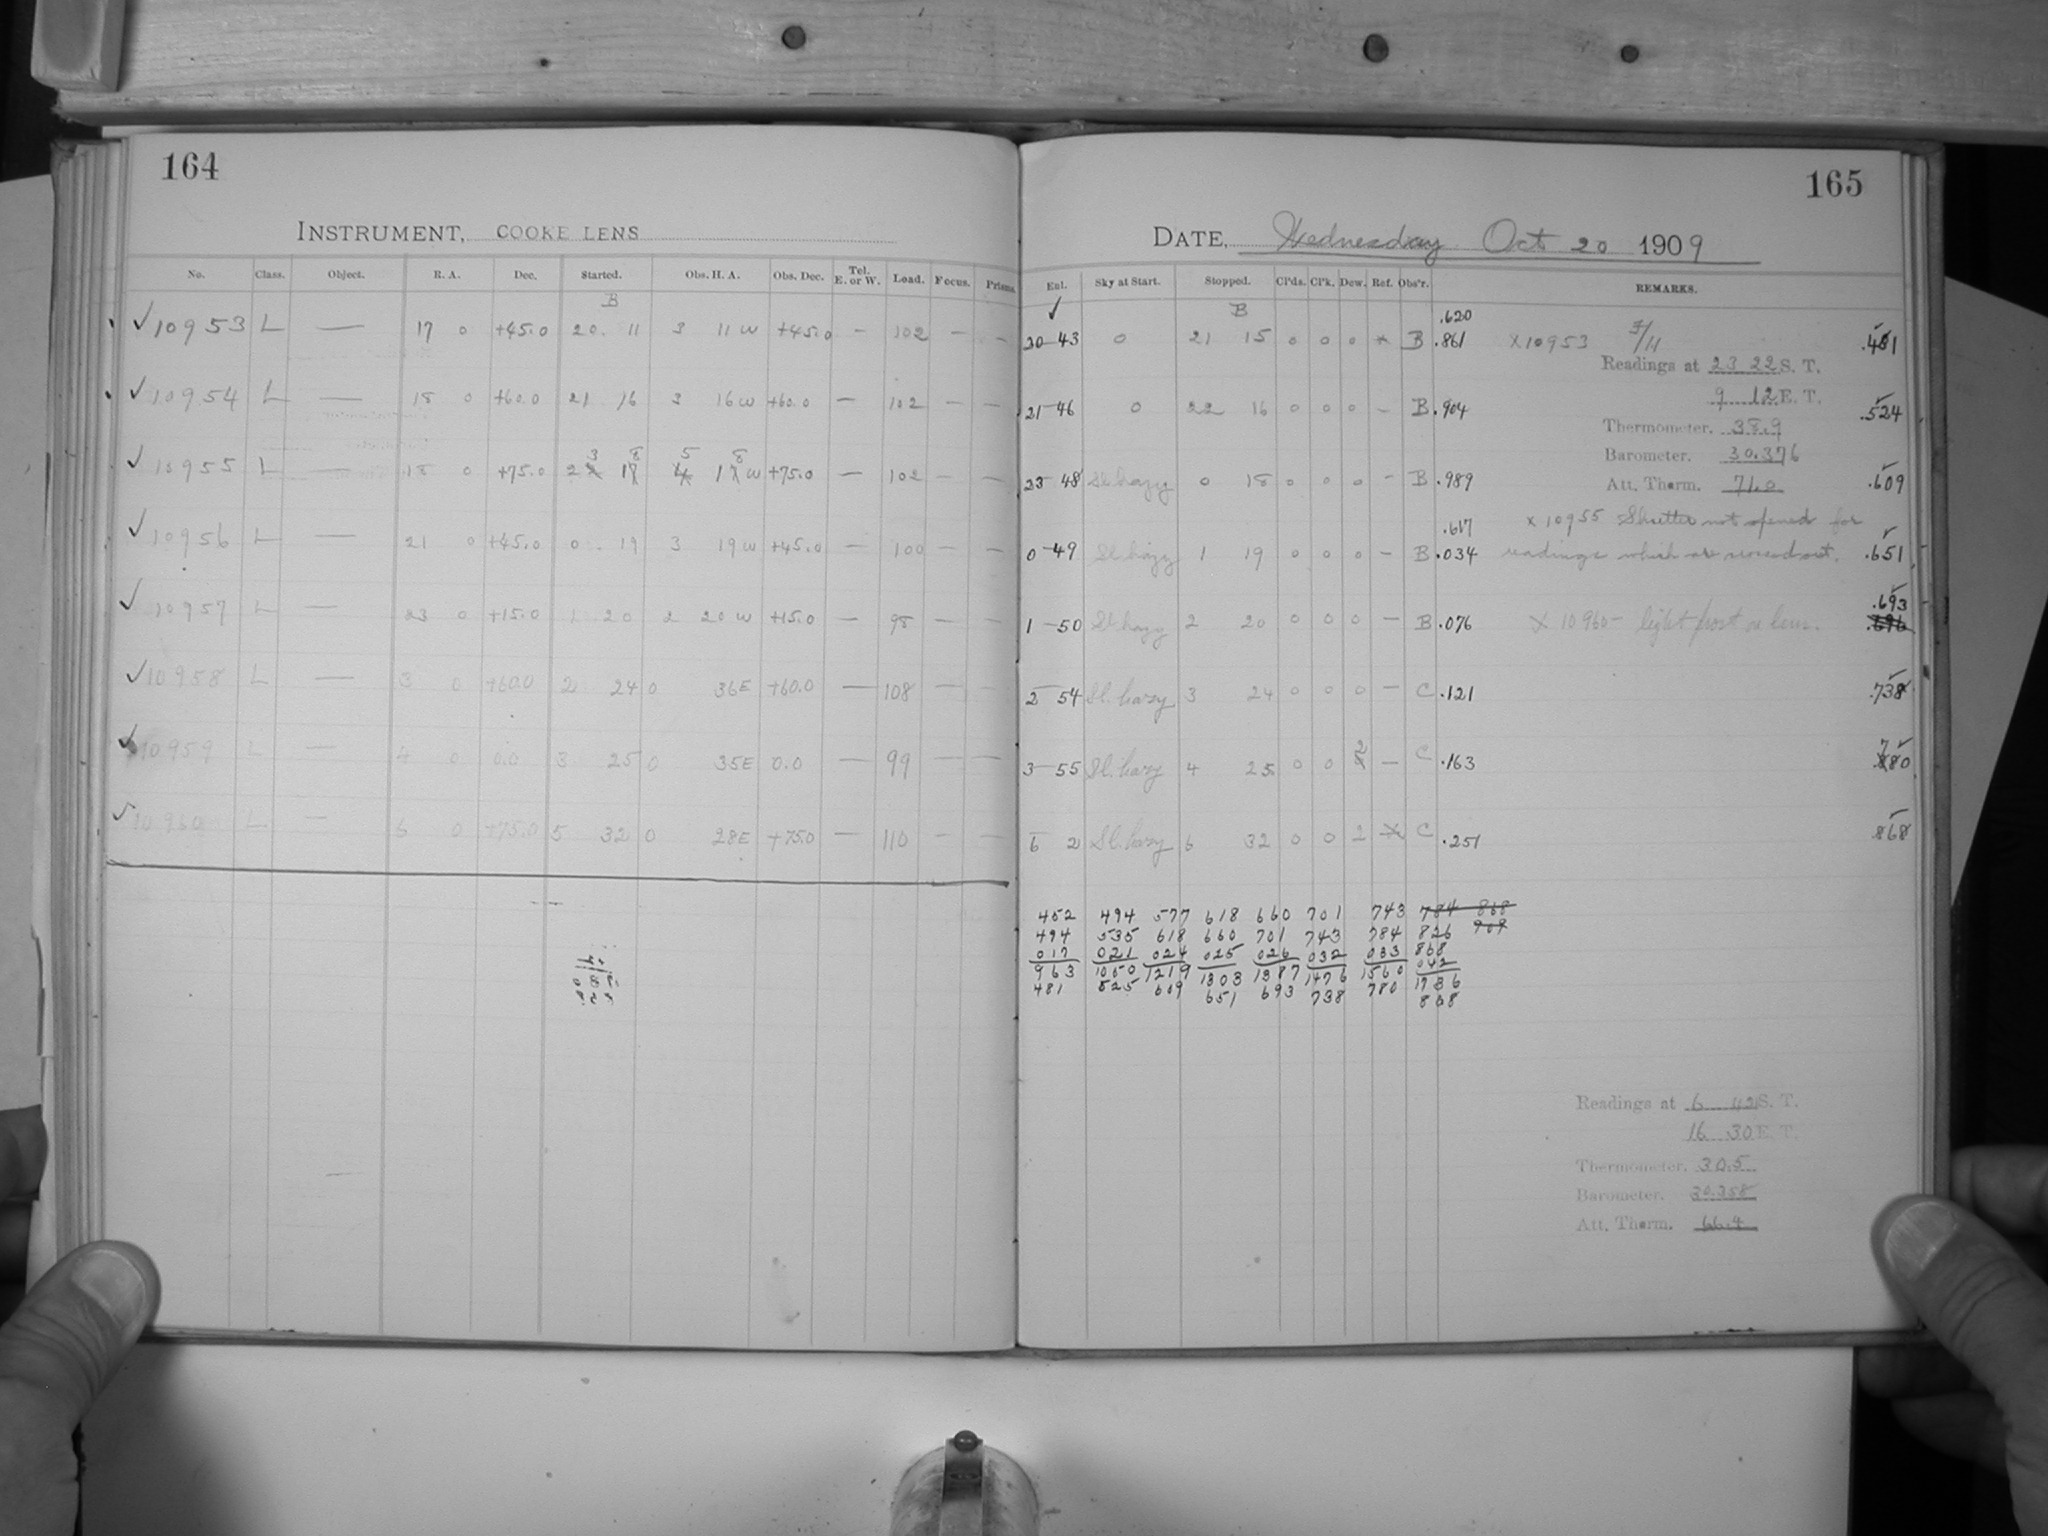 164
INSTRUMENT, COOKE LENS
No. Class. Object. R. A. Dec. Started. Obs. H. A. Obs. Dec. Tel. E. or W. Load. Focus. Prisms.
B
✓ 10953 L — 17 0 +45.0 20 11 3 11 W +45.0 — 102 — —
✓ 10954 L — 18 0 +60.0 21 16 3 16 W +60.0 — 102 — —
3 8 5 8
✓ 10955 L — 18 0 +75.0 2 1 1 W +75.0 — 102 — —
✓ 10956 L — 21 0 +45.0 0 19 3 19 W +45.0 — 100 — —
✓ 10957 L — 23 0 +15.0 1 20 2 20 W +15.0 — 98 — —
✓ 10958 L — 3 0 +60.0 2 24 0 36E +60.0 — 108 — —
✓ 10959 L — 4 0 0.0 3 25 0 35E 0.0 — 99 — —
✓ 10960 L — 6 0 +75.0 5 32 0 28E +75.0 — 110 — —
165
DATE, Wednesday Oct 20 1909
Eul. Sky at Start. Stopped. Cl'ds. Cl'k. Dew. Ref. Obs'r. REMARKS.
✓ B .620
20 43 0 21 15 0 0 0 * B .861 x 10953 .481
Readings at 23 22 S. T.
9 12 E. T.
21 46 0 22 16 0 0 0 – B .904 .524
Thermometer. 38.9
Barometer. 30.376
23 48 Sl. hazy 0 18 0 0 0 – B .989 .609
Att. Therm. 71.0
.617 x 10955 Shutter not opened for
0 49 Sl. hazy 1 19 0 0 0 – B .034 readings which are crossed out. .651
.693
1 50 Sl. hazy 2 20 0 0 0 — B .076 X 10960 – light frost on lens. .696
2 54 Sl. hazy 3 24 0 0 0 — C .121 .738
2 7
3 55 Sl. hazy 4 25 0 0 — C .163 .880
6 2 Sl. hazy 6 32 0 0 2 X C .251 .868
452 494 577 618 660 701 743 784 868
494 535 618 660 701 743 784 826 909
017 021 024 025 026 032 033 868
963 1050 1219 1303 1387 1476 1560 042
481 525 609 651 693 738 780 1736
868
Readings at 6 42 S. T.
16 30 E. T.
Thermometer. 30.5
Barometer. 30.358
Att. Therm. 66.4